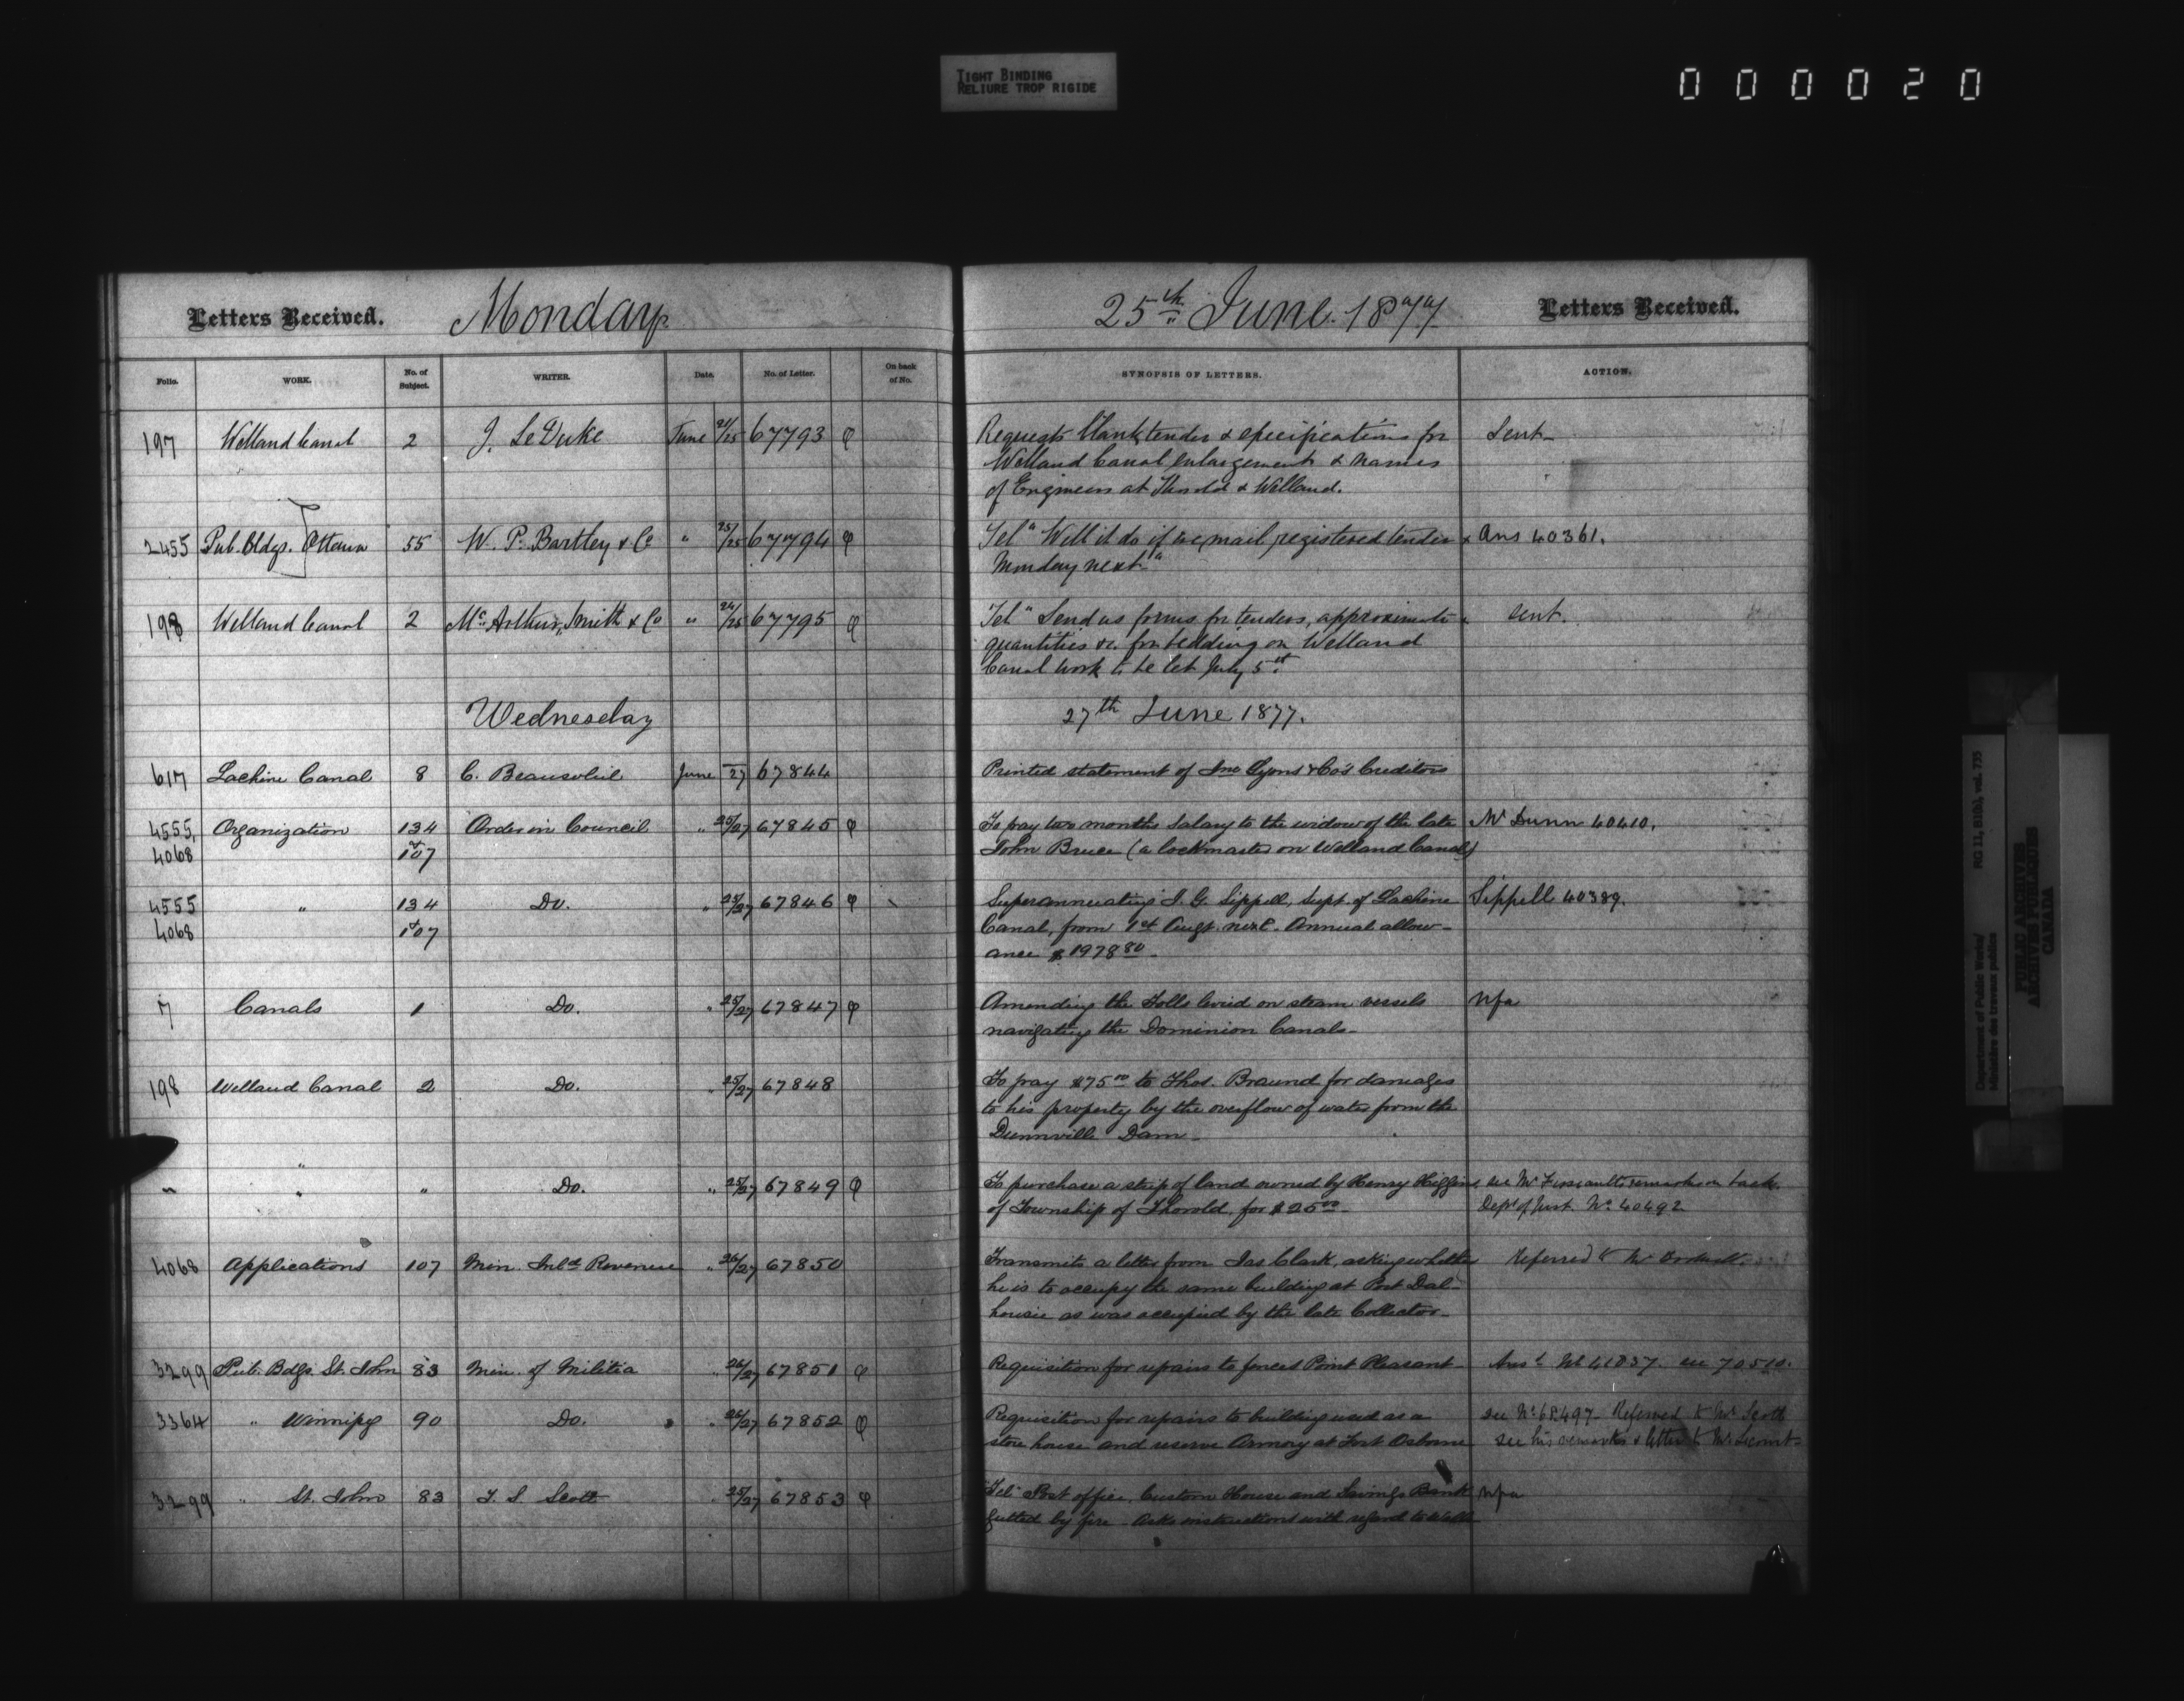 TIGHT BINDING
RELIURE TROP RIGIDE
000020
Letters Received. Monday 25th June 1877 Letters Received.
Folio. WORK. No. of Subject. WRITER. Date. No. of Letter. On back of No. SYNOPSIS OF LETTERS. ACTION.
197 Welland Canal 2 J. LeDuke June 21/25 67793 φ Requests blank tender & specifications for Sent
Welland Canal enlargement & names
of Engineers at Thorold & Welland.
2455 Pub. Bldgs. Ottawa 55 W. P. Bartley & Co " 25/25 67794 φ Tel " Will it do if we mail registered tender Ans 40361.
Monday next"
198 Welland Canal 2 Mc Arthur, Smith & Co " 24/25 67795 φ Tel " Send us forms for tenders, approximate sent.
quantities &c. for bidding on Welland
Canal work to be let July 5
Wednesday 27th June 1877.
617 Lachine Canal 8 C. Beausoleil June 27 67844 Printed statement of Jno Lyons & Co's Creditors
4555, Organization 134 Order in Council " 25/27 67845 φ To pay two months Salary to the widow of the late Mr Dunn 40410.
4068 & 107 John Bruce (a lockmaster on Welland Canal)
4555 " 134 Do. " 25/27 67846 φ Superannuating J. G. Sippell, Supt. of Lachine Sippell 40389.
4068 & 107 Canal, from 1st Augt. next. Annual allow-
ance $1978 80
7 Canals 1 Do. " 25/27 67847 φ Amending the Tolls levied on steam vessels Nfa
navigating the Dominion Canals
198 Welland Canal 2 Do. " 25/27 67848 To pay $75 00 to Thos. Braund for damages
to his property by the overflow of water from the
Dunnville Dam
" " " Do. " 25/27 67849 φ To purchase a strip of land owned by Henry Higgins see Mr remarks on back.
of Township of Thorold, for $25 00 Dept of Just. No 40492
4068 Applications 107 Min. Inld Revenue " 26/27 67850 Transmits a letter from Jas Clark, asking whether Referred to Mr
he is to occupy the same building at Port Dal-
housie as was occupied by the late Collector
3299 Pub. Bdgs. St. John 83 Min. of Militia " 26/27 67851 φ Requisition for repairs to fences Point Pleasant Ansd No 41837. see 70510.
3364 " Winnipeg 90 Do. " 26/27 67852 φ Requisition for repairs to building used as a see No 68497 Referred to Mr Scott
store house and reserve Armory at Fort Osborne see his remarks & letter to Mr
3299 " St. John 83 T. S. Scott " 25/27 67853 φ Tel Post office, Custom House and Savings Bank Nfa
gutted by fire Asks instructions with regard to
Department of Public Works/ RG 11, B1(b), vol. 735
Ministère des travaux publics
PUBLIC ARCHIVES
ARCHIVES PUBLIQUES
CANADA